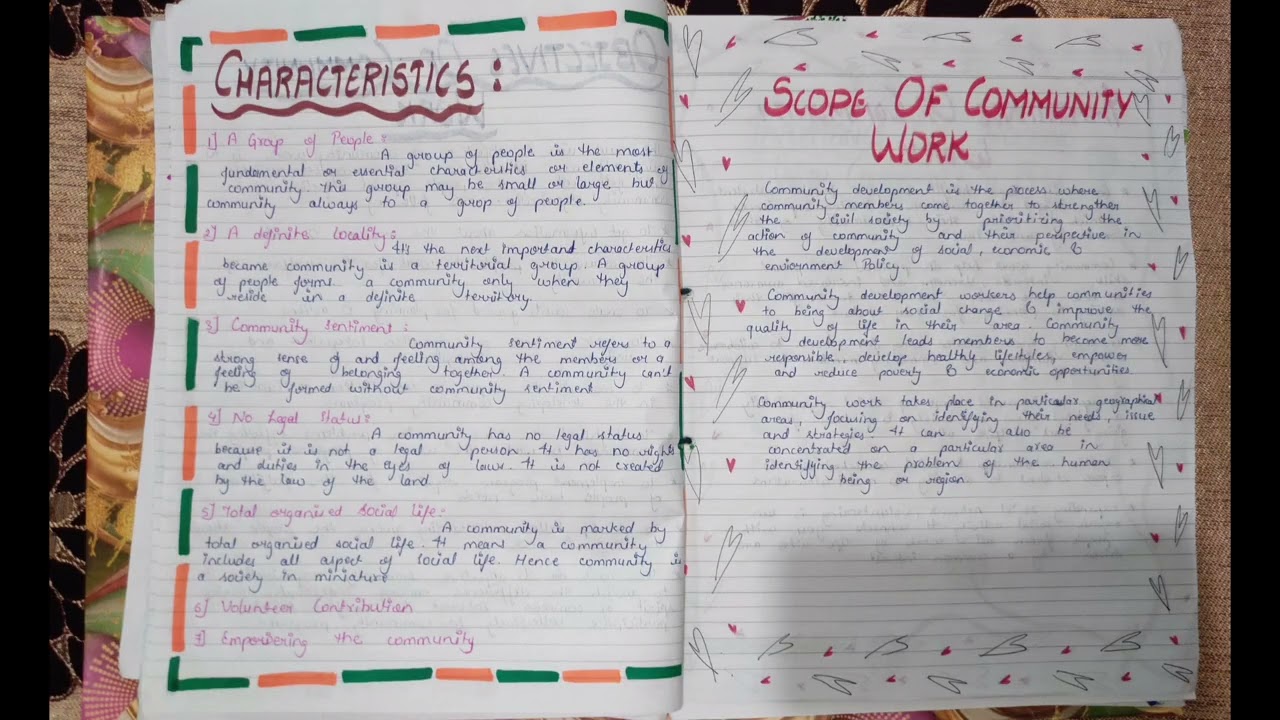 CHARACTERISTICS :
1] A Group of People :
A group of people is the most
fundemental or essential characteristics or elements of
community this group may be small or large but
community always to a grop of people.
2] A definite locality :
It's the next important characteristics
became community is a territorial group. A group
of people forms a community only when they
reside in a definite territory.
3] Community sentiment :
Community sentiment refers to a
strong sense of and feeling among the members or a
feeling of belonging together. A community can't
be formed without community sentiment
4] No Legal Status :
A community has no legal status
because it is not a legal person. It has no rights
and duties in the eyes of law. It is not created
by the law of the land.
5] Total organised social life :
A community is marked by
total organised social life. It means a community
includes all aspect of social life. Hence community is
a society in miniature
6] Volunteer Contribution
7] Empowering the community
SCOPE OF COMMUNITY
WORK
Community development is the process where
community members come together to strengther
the civil society by prioritizing the
action of community and their perspective in
the development of social, economic &
enviornment Policy
Community development workers help communities
to being about social change & improve the
quality of life in their area. Community
development leads members to become more
responsible, develop healthy lifestyles, empower
and reduce poverty & economic opportunities
Community work takes place in particular geographical
areas, focusing on identifying their needs, issue
and strategies. It can also be
concentrated on a particular area in
identifying the problem of the human
being or region